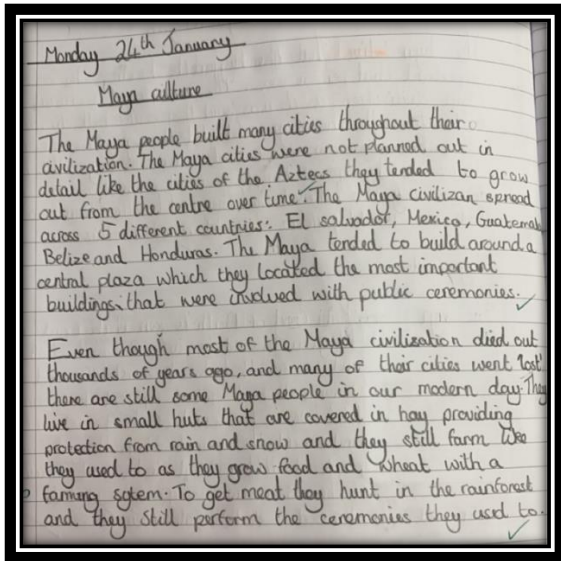 Monday 24th January
Maya culture
The Maya people built many cities throughout their
civilization. The Maya cities were not planned out in
detail like the cities of the Aztecs they tended to grow
out from the centre over time. The Maya civilizan spread
across 5 different countries: El salvador, Mexico, Guatemala
Belize and Honduras. The Maya tended to build around a
central plaza which they located the most important
buildings that were involved with public ceremonies.
Even though most of the Maya civilization died out
thousands of years ago, and many of their cities went 'lost'
there are still some Maya people in our modern day. They
live in small huts that are covered in hay providing
protection from rain and snow and they still farm like
they used to as they grow food and wheat with a
faming sytem. To get meat they hunt in the rainforest
and they still perform the ceremonies they used to.